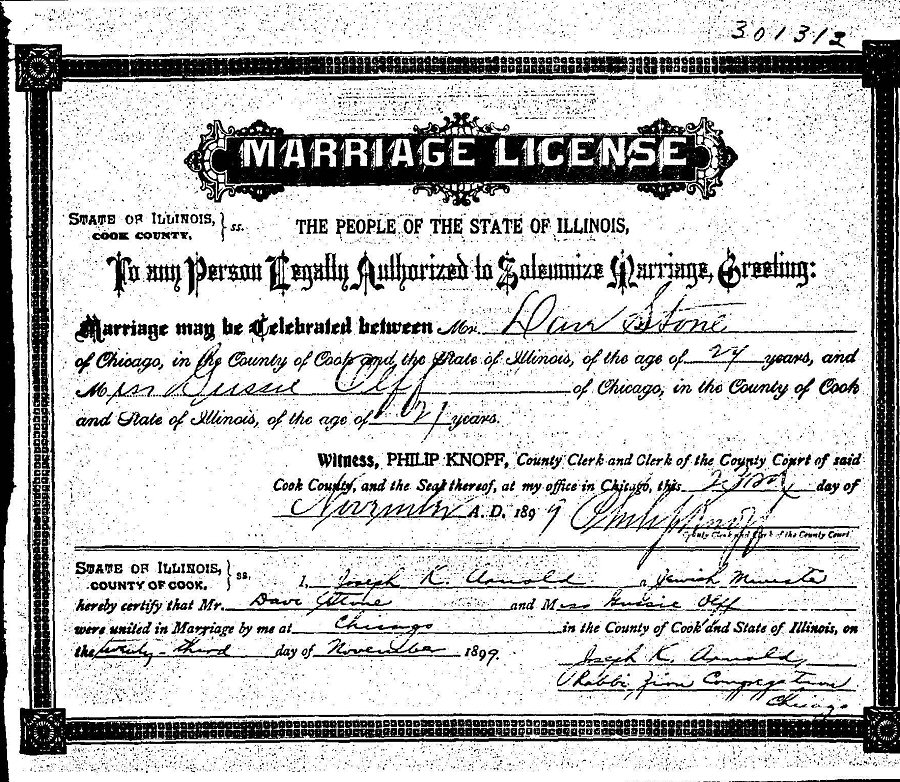 301312
MARRIAGE LICENSE
STATE OF ILLINOIS, } ss.
COOK COUNTY.
THE PEOPLE OF THE STATE OF ILLINOIS,
To any Person Legally Authorized to Solemnize Marriage, Greeting:
Marriage may be Celebrated between Mr. Dave Stone
of Chicago, in the County of Cook and the State of Illinois, of the age of 24 years, and
Miss Gussie Oeff of Chicago, in the County of Cook
and State of Illinois, of the age of 21 years.
Witness, PHILIP KNOPF, County Clerk and Clerk of the County Court of said
Cook County, and the Seal thereof, at my office in Chicago, this day of
November A. D. 1899 Philip Knopf
County Clerk and Clerk of the County Court.
STATE OF ILLINOIS, } ss.
COUNTY OF COOK.
I, Joseph K. Arnold a Jewish Minister
hereby certify that Mr. Dave Stone and Miss Gussie Oeff
were united in Marriage by me at Chicago in the County of Cook and State of Illinois, on
the twenty-third day of November 1899.
Joseph K. Arnold,
Rabbi, Zion Congregation
Chicago